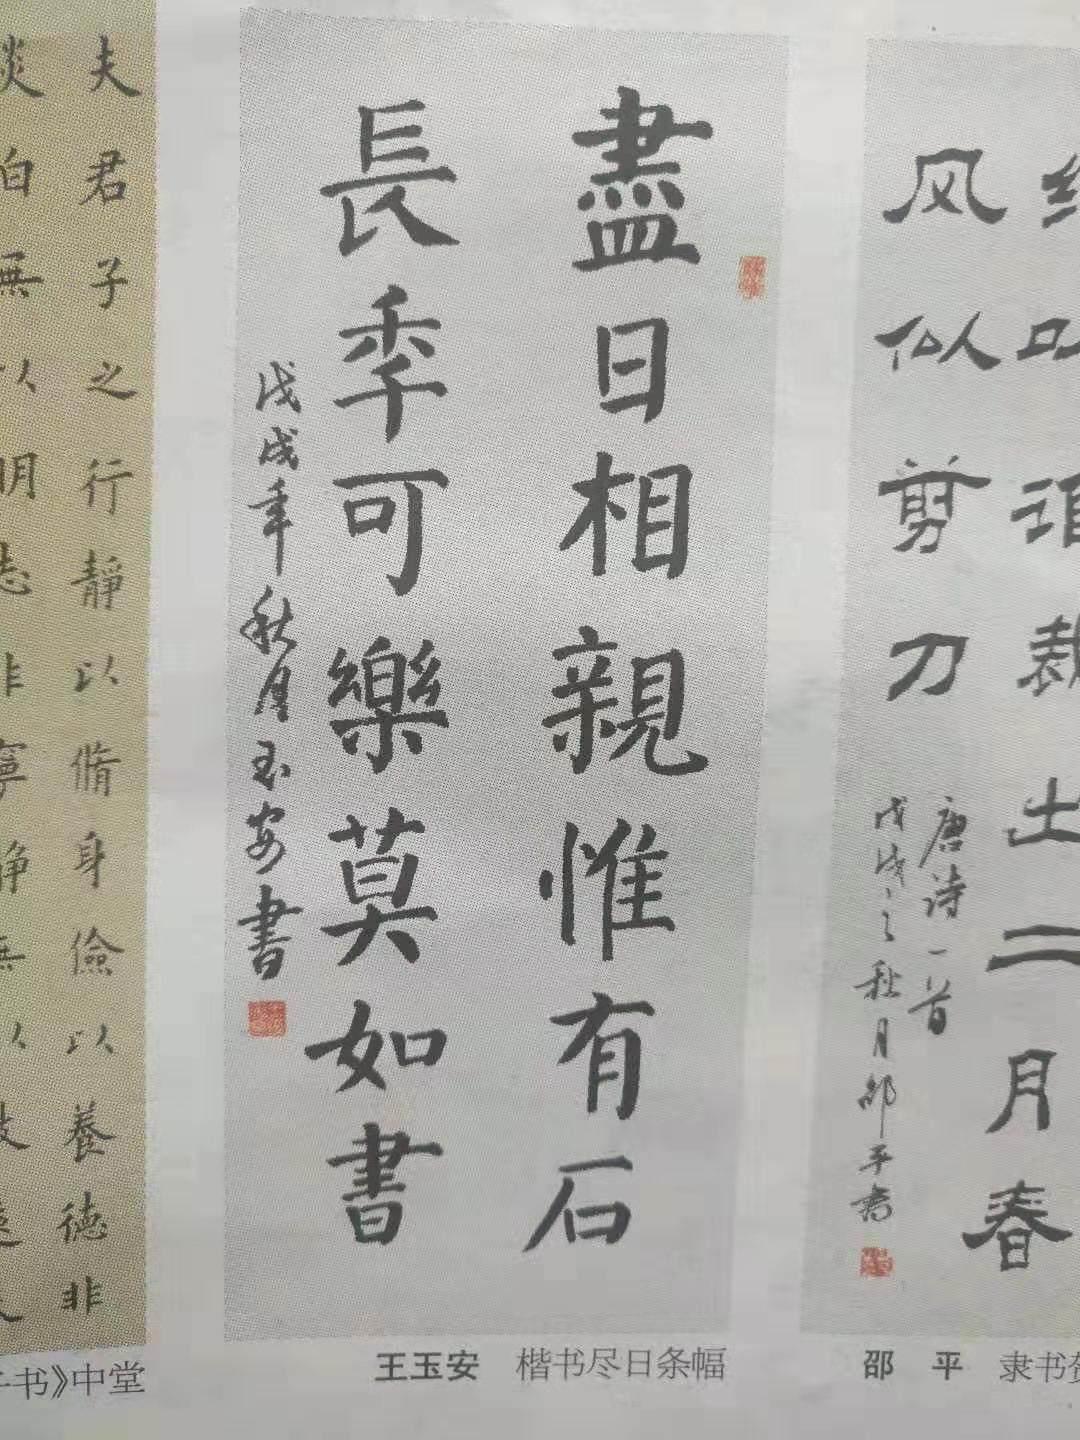 夫君子之行靜以脩身儉以養德非
淡泊無以明志非寧静無以致遠
书》中堂
盡日相親惟有石
長秊可樂莫如書
戊戌年秋月玉安書
王玉安 楷书尽日条幅
细叶谁裁出二月春
风似剪刀
唐诗一首
戊戌之秋月邵平书
邵 平 隶书贺